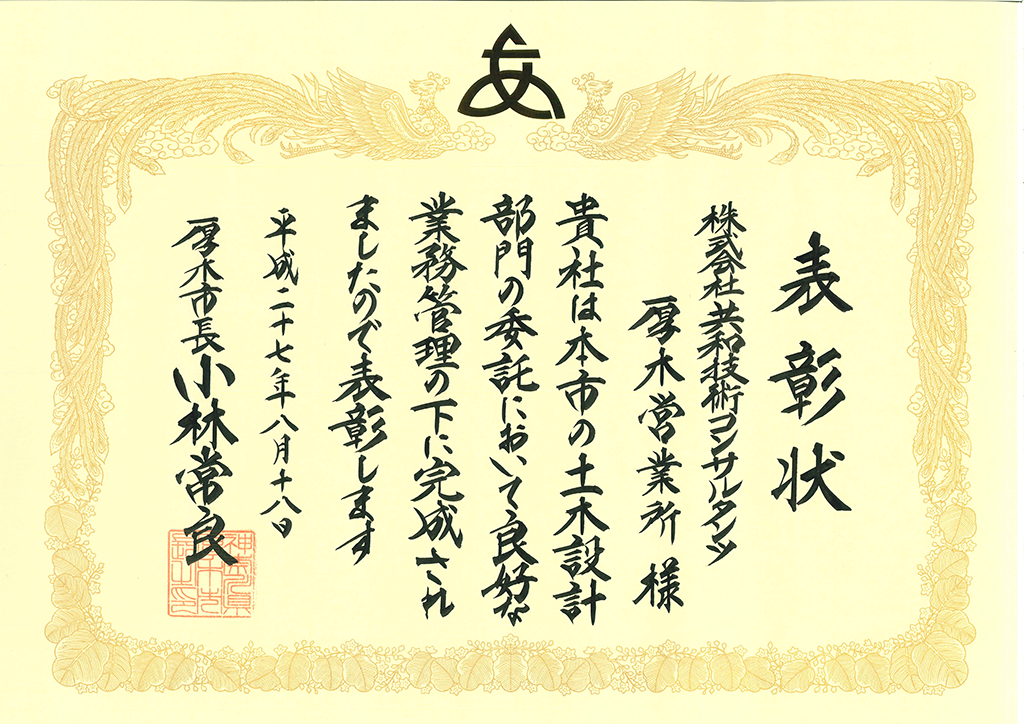 表彰状
株式会社共和技術コンサルタンツ
厚木営業所 様
貴社は本市の土木設計
部門の委託において良好な
業務管理の下に完成され
ましたので表彰します
平成二十七年八月十八日
厚木市長 小林常良